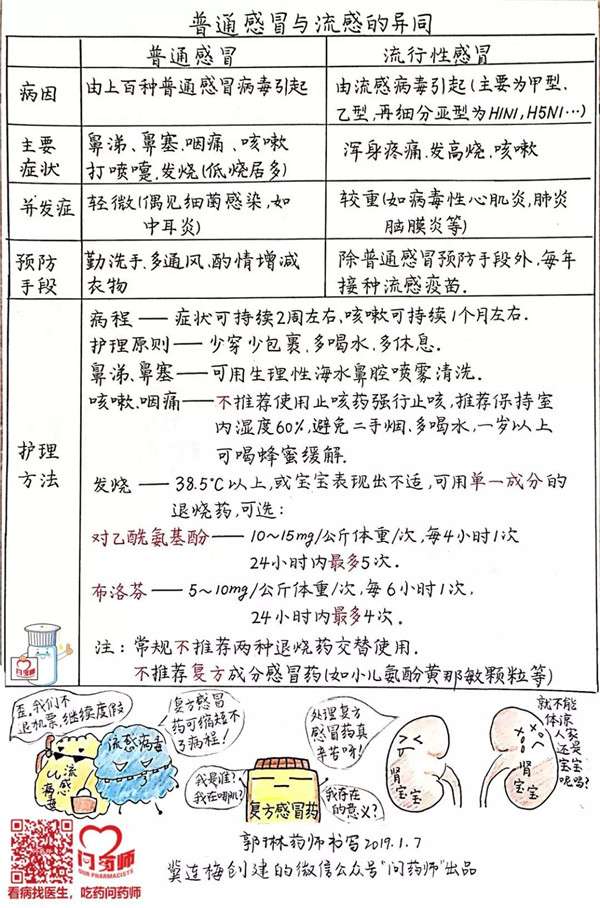 普通感冒与流感的异同
普通感冒
流行性感冒
病因
由上百种普通感冒病毒引起
由流感病毒引起(主要为甲型.
乙型,再细分亚型为H1N1,H5N1…)
主要
症状
鼻涕、鼻塞.咽痛、咳嗽
打喷嚏.发烧(低烧居多)
浑身疼痛.发高烧.咳嗽
并发症
轻微(偶见细菌感染,如
中耳炎)
较重(如病毒性心肌炎,肺炎
脑膜炎等)
预防
手段
勤洗手.多通风.酌情增减
衣物
除普通感冒预防手段外,每年
接种流感疫苗.
护理
方法
病程——症状可持续2周左右.咳嗽可持续1个月左右.
护理原则——少穿少包裹.多喝水.多休息.
鼻涕、鼻塞——可用生理性海水鼻腔喷雾清洗.
咳嗽.咽痛——不推荐使用止咳药强行止咳,推荐保持室
内湿度60%,避免二手烟.多喝水,一岁以上
可喝蜂蜜缓解.
发烧——38.5℃以上,或宝宝表现出不适,可用单一成分的
退烧药,可选:
对乙酰氨基酚——10~15mg/公斤体重/次,每4小时1次
24小时内最多5次.
布洛芬——5~10mg/公斤体重/次,每6小时1次,
24小时内最多4次.
注:常规不推荐两种退烧药交替使用.
不推荐复方成分感冒药(如小儿氨酚黄那敏颗粒等)
问药师
歪,我们不
退机票,继续度假
复方感冒
药可缩短不
了病程!
流感病毒
流感
病毒
我是谁?
我在哪儿?
复方感冒药
我存在
的意义?
处理复方
感冒药真
辛苦呀!
肾
宝宝
肾
宝宝
就不能
体凉
人家
还是
宝宝
呢吗?
郭琳药师书写2019.1.7
冀连梅创建的微信公众号"问药师"出品
问药师
OUR PHARMACISTS
看病找医生,吃药问药师